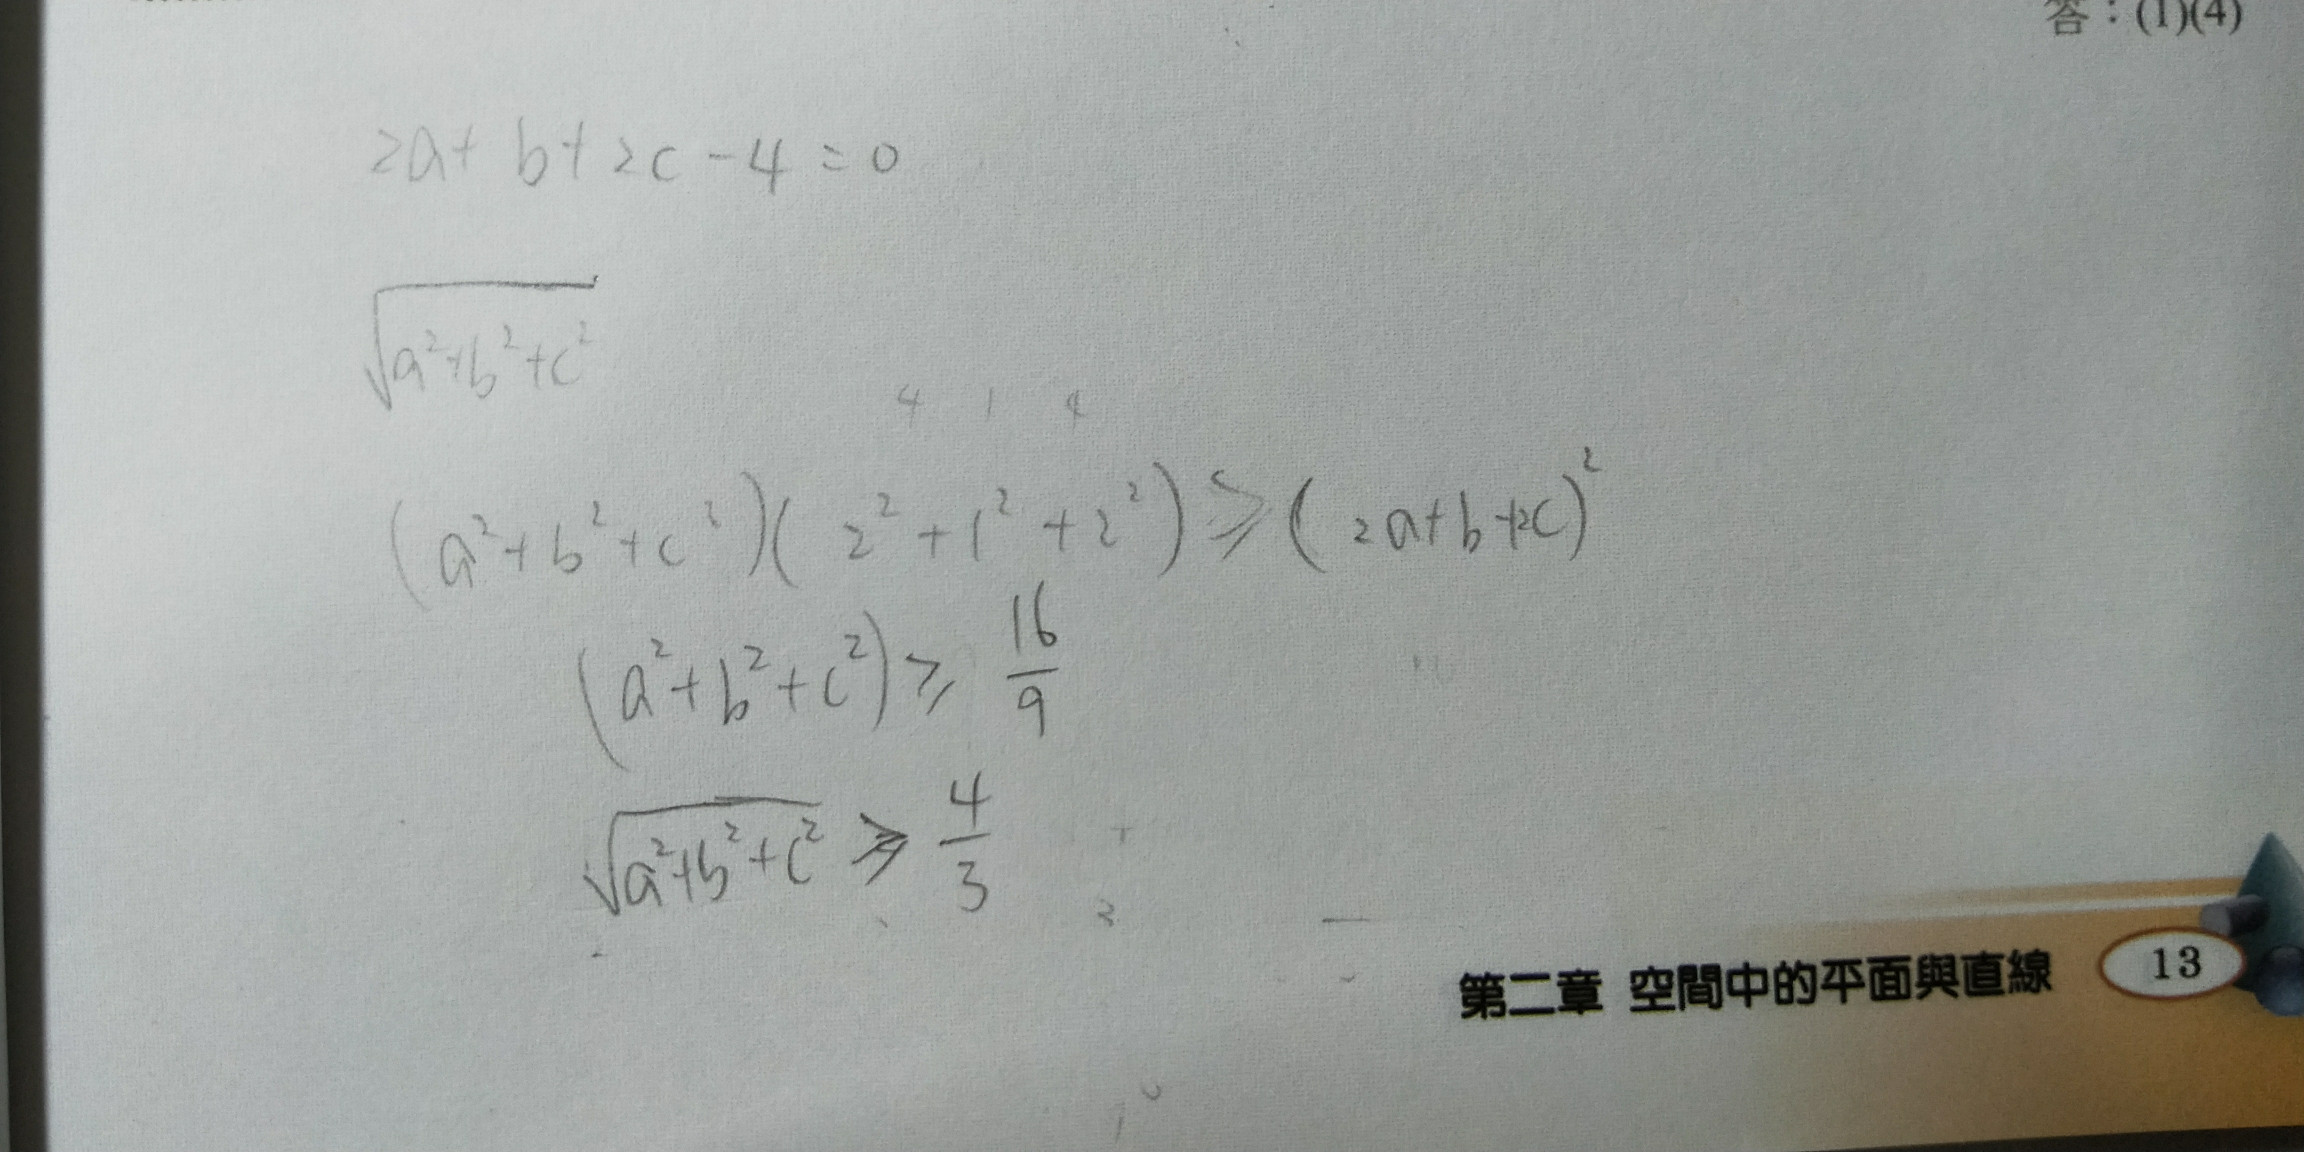 答：(1)(4)
2a+b+2c-4=0
√(a²+b²+c²)
4 1 4
(a²+b²+c²)(2²+1²+2²)≥(2a+b+2c)²
(a²+b²+c²)≥16/9
√(a²+b²+c²)≥4/3
第二章 空間中的平面與直線 13